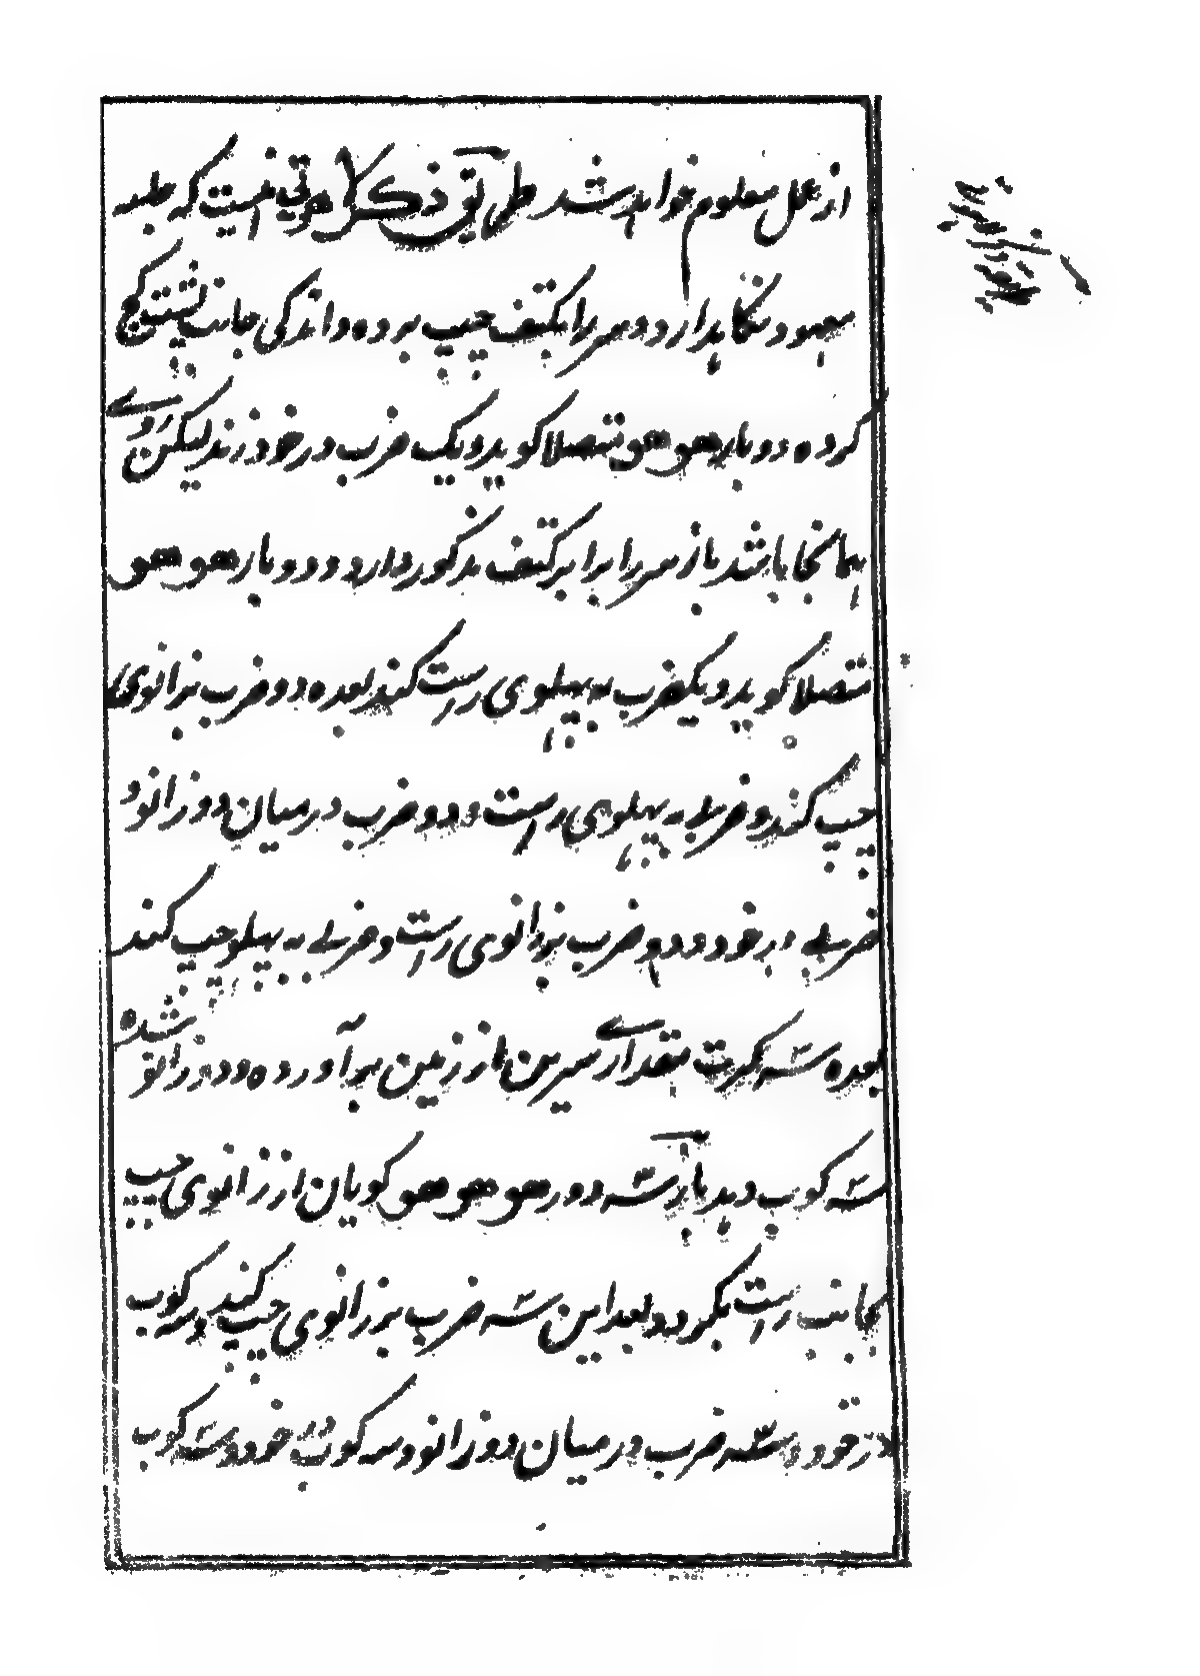 از عمل معلوم خواهد شد طریق ذکر هوتی اینست که جلسه
معهود نگاهدارد و سر را بکتف چپ برده و اندکی جانب پشت کج
کرده دو بار هو هو متصلا گوید و یک ضرب در خود زند لیکن روے
همانجا باشد باز سر را برابر کتف مذکور دارد و دو بار هو هو
متصلا گوید و یکضرب به پهلوی راست کند بعده دو ضرب بزانوی
چپ کند و ضربے به پهلوی راست و دو ضرب درمیان دو زانو و
ضربے در خود و دو ضرب بزانوی راست و ضربے به پهلو چپ کند
بعده سه کرت مقدارے سیرین از زمین برآورده و دو زانو شده
سه کوب دهد باز سه دور هو هو هو گویان از زانوی چپ
بجانب راست بگردد و بعد این سه ضرب بر زانوی چپ کند و سه کوب
در خود و سه ضرب درمیان دو زانو و سه کوب در خود و سه کوب